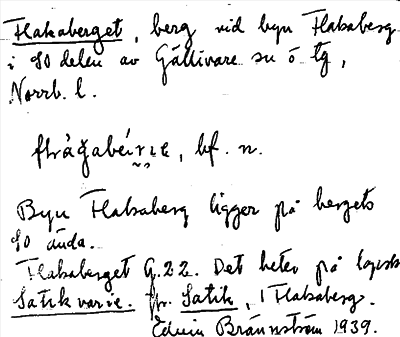 Flakaberget, berg vid byn Flakaberg
i SO delen av Gällivare sn o tg,
Norrb. l.
bf. n.
Byn Flakaberg ligger på bergets
SO ända.
Flakaberget G.22. Det heter på lapska
Satik varie. fr. Satik, Flakaberg.
Edvin Brännström 1939.